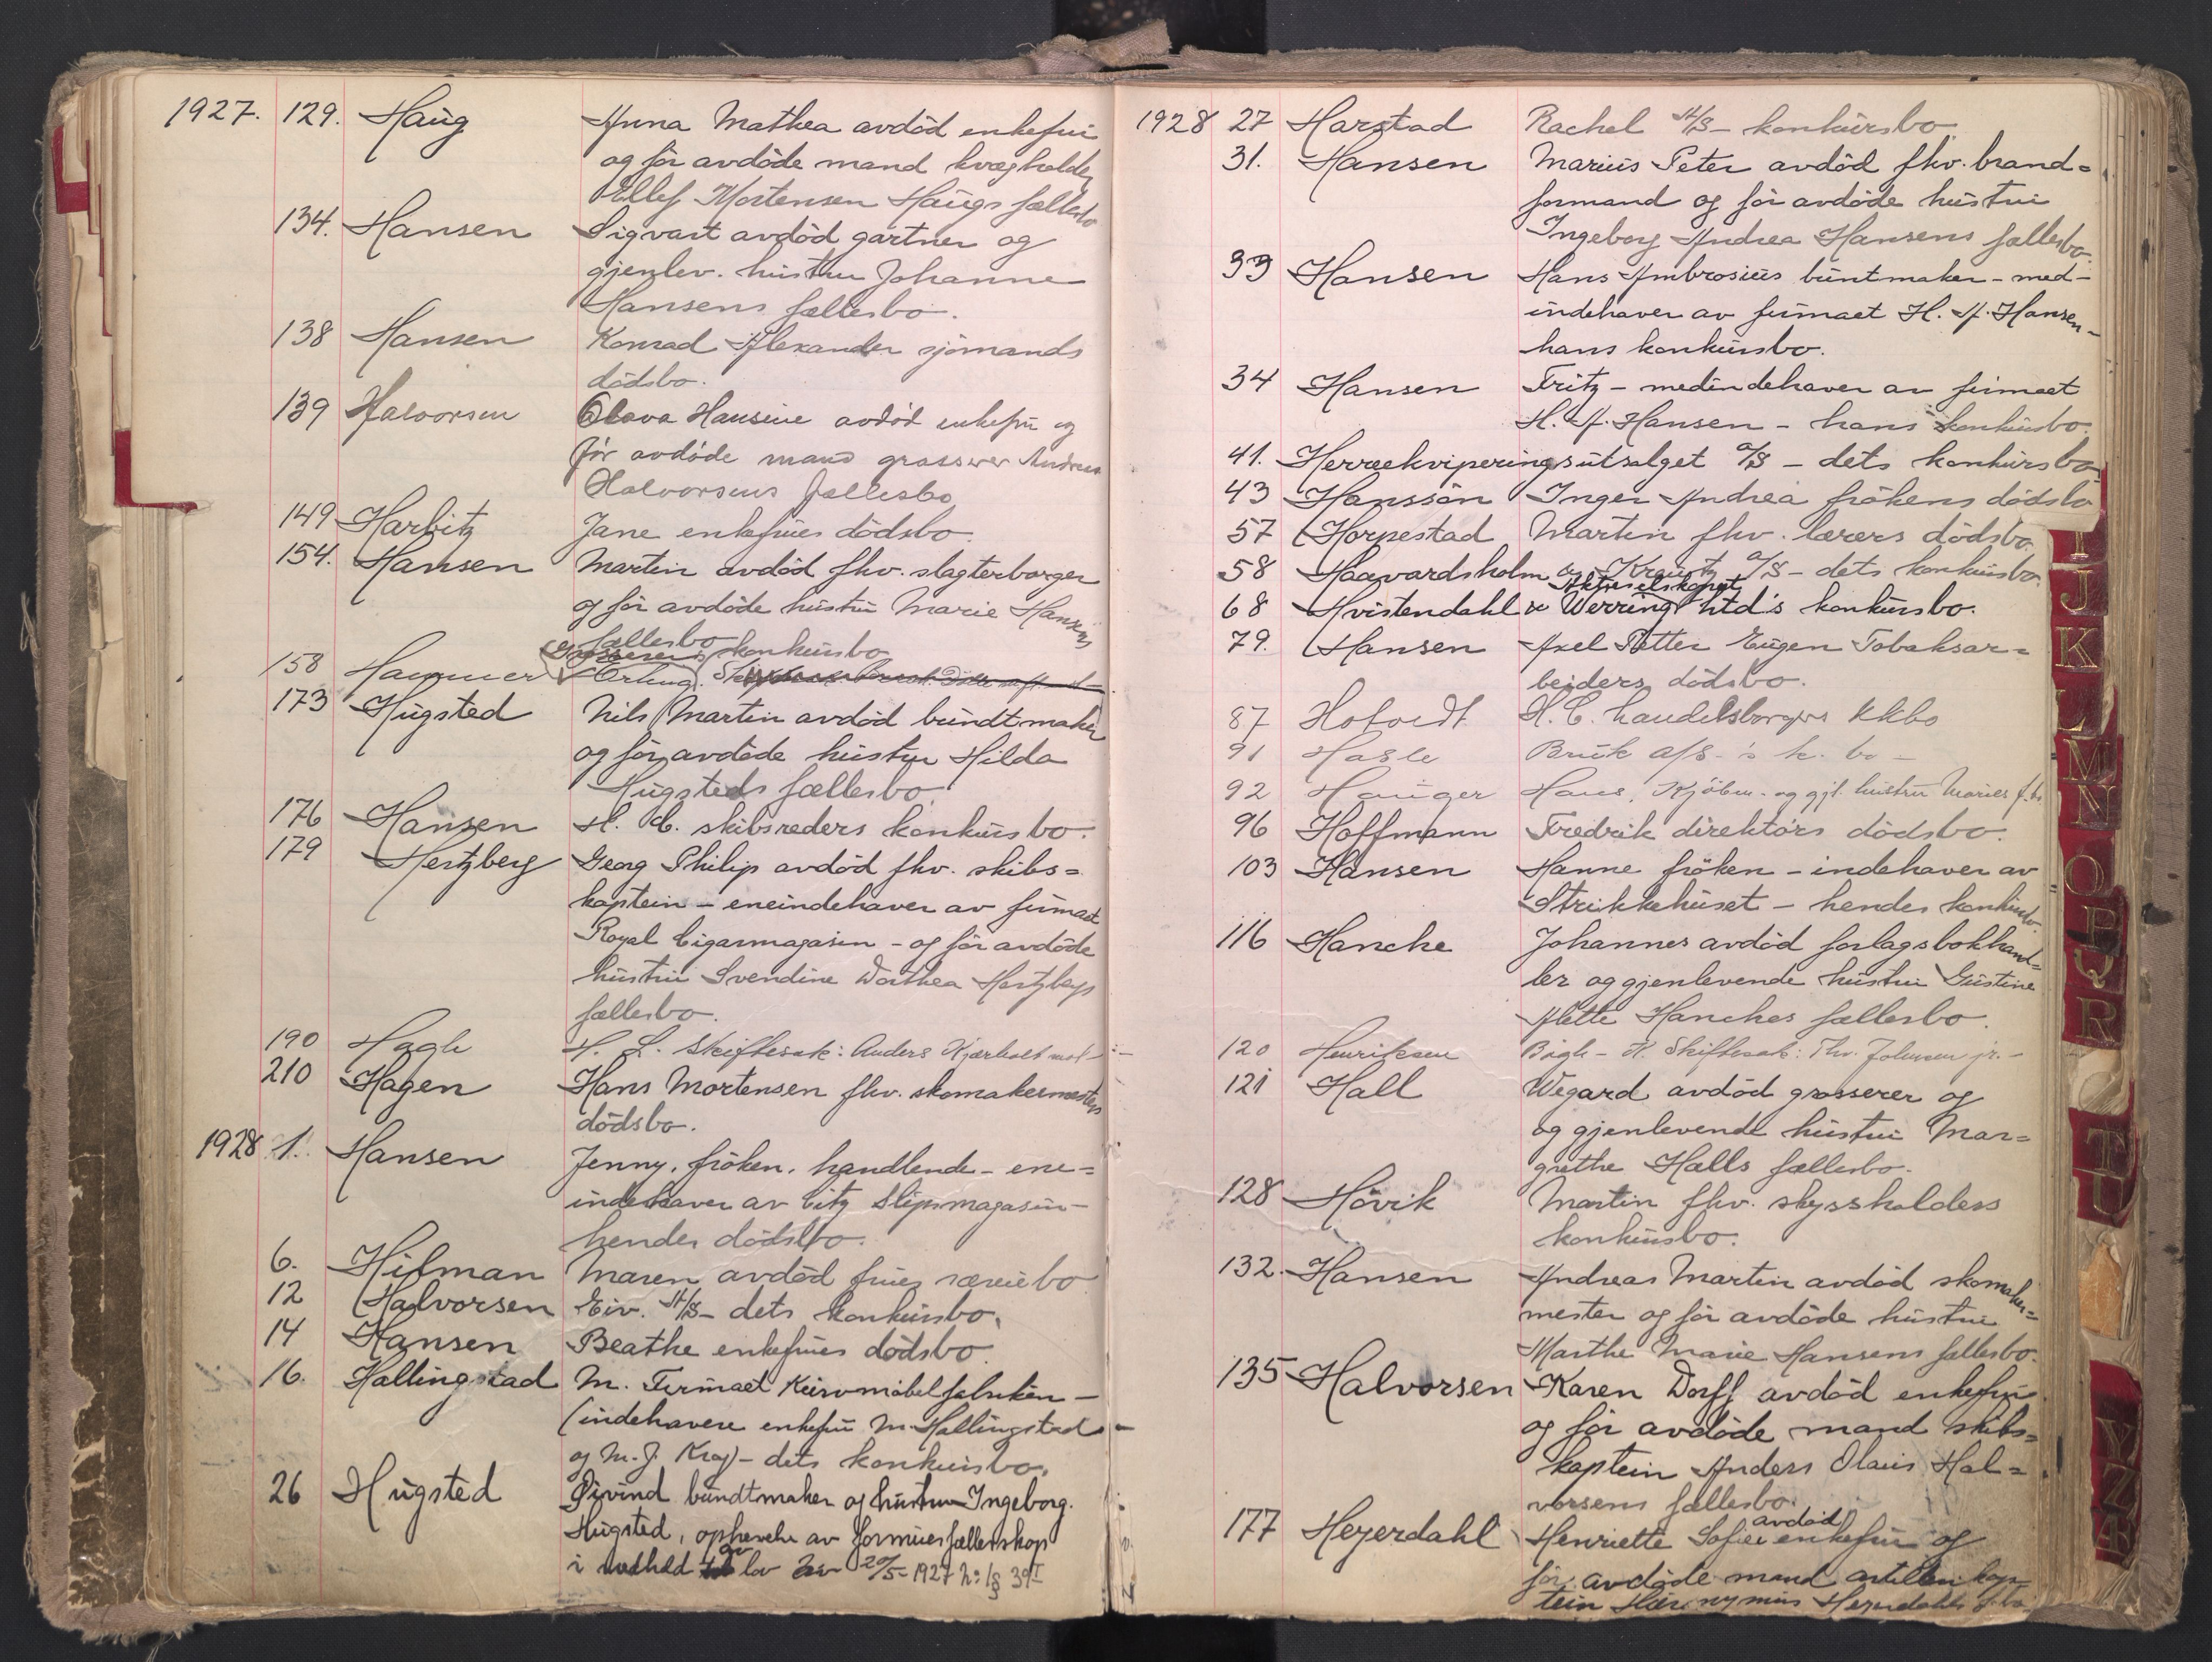 1927. 129. Haug Anna Mathea avdöd enkefru
og för avdöde mand kvægholder
Ellef Mortensen Haugs fællesbo
134. Hansen Sigvart avdöd gartner og
gjenlev. hustru Johanne
Hansens fællesbo.
138 Hansen Konrad Alexander sjömands
dödsbo.
139 Halvorsen Olava Hansine avdöd enkefru og
før avdøde mand grosserer Andreas
Halvorsens fællesbo
149 Harbitz Jane enkefrues dödsbo.
154. Hansen Martin avdöd fhv. slagterborger
og för avdöde hustru Marie Hansens
fællesbo
158 Hammer Grosserer Erling konkursbo
173 Hugsted Nils Martin avdöd bundtmaker
og för avdöde hustru Hilda
Hugsteds fællesbo
176 Hansen H. C. skibsreders konkursbo.
179 Hertzberg Georg Philip avdöd fhv. skibs=
kaptein – eneindehaver av firmaet
Royal Cigarmagasin – og för avdöde
hustru Svendine Dorthea Hertzbergs
fællesbo.
190 Hagh H. L. Skiftesak: Anders Kjærholt mot –
210 Hagen Hans Mortensen fhv. skomakermesters
dödsbo.
1928 1. Hansen Jenny, fröken, handlende – ene=
indehaver av City Slipsmagasin –
hendes dödsbo.
6. Hilman Maren avdöd frues særeiebo
12 Halvorsen Eiv. A/S – dets konkursbo.
14 Hansen Beathe enkefrues dödsbo
16. Hallingstad M. Firmaet Kurvmöbelfabriken –
(indehavere enkefru M. Hallingstad –
og M. J. Krag) – dets konkursbo.
26 Hugsted Øivind bundtmaker og hustru Ingeborg
Hugsted, ophevelse av formuesfællesskap
i medhold av lov av 20/5–1927 n: 1 § 39 I
1928 27 Harstad Rachel A/S – konkursbo.
31. Hansen Marius Peter avdöd fhv. brand=
formand og för avdöde hustru
Ingeborg Andrea Hansens fællesbo.
33 Hansen Hans Ambrosius buntmaker – med–
indehaver av firmaet H. A. Hansen –
hans konkursbo.
34 Hansen Fritz – medindehaver av firmaet
H. A. Hansen – hans konkursbo.
41. Herreekviperingsutsalget A/S – dets konkursbo
43 Hanssön Inger Andrea frökens dödsbo
57 Horpestad Martin fhv. lærers dödsbo.
58 Haavardsholm & Krautz A/S – dets konkursbo.
68 Hvistendahl & Werring Aktieselskapet htd's konkursbo.
79. Hansen Axel Petter Eugen Tobaksar=
beiders dödsbo.
87 Hofvedt H. C. handelsborgers kkbo
91 Hasle Bruk a/s – s k. bo –
92 Hauger Hans, Kjöbm. og gjl. hustru Maries f. bo
96 Hoffmann Fredrik direktörs dödsbo.
103 Hansen Hanne fröken – indehaver av
Strikkehuset – hendes konkursbo.
116 Hanche Johannes avdöd forlagsbokhand=
ler og gjenlevende hustru Gustine
Alette Hanches fællesbo.
120 Henriksen Bögh – H. Skiftesak: Thv. Johnsen jr. –
121 Hall Wegard avdöd grosserer og
og gjenlevende hustru Mar=
grethe Halls fællesbo.
128 Hövik Martin fhv. skyssholders
konkursbo.
132. Hansen Andreas Martin avdöd skomaker=
mester og för avdöde hustru
Marthe Marie Hansens fællesbo.
135 Halvorsen Karen Dorff avdöd enkefru
og för avdöde mand skibs=
kaptein Anders Olaus Hal=
vorsens fællesbo.
177 Heyerdahl Henriette Sofie avdöd enkefru og
för avdöde mand artillerikap
tein Hieronymus Heyerdahls f.bo.
I
J
K
L
M
N
O
P
Q
R
T
U
V
Z
Æ